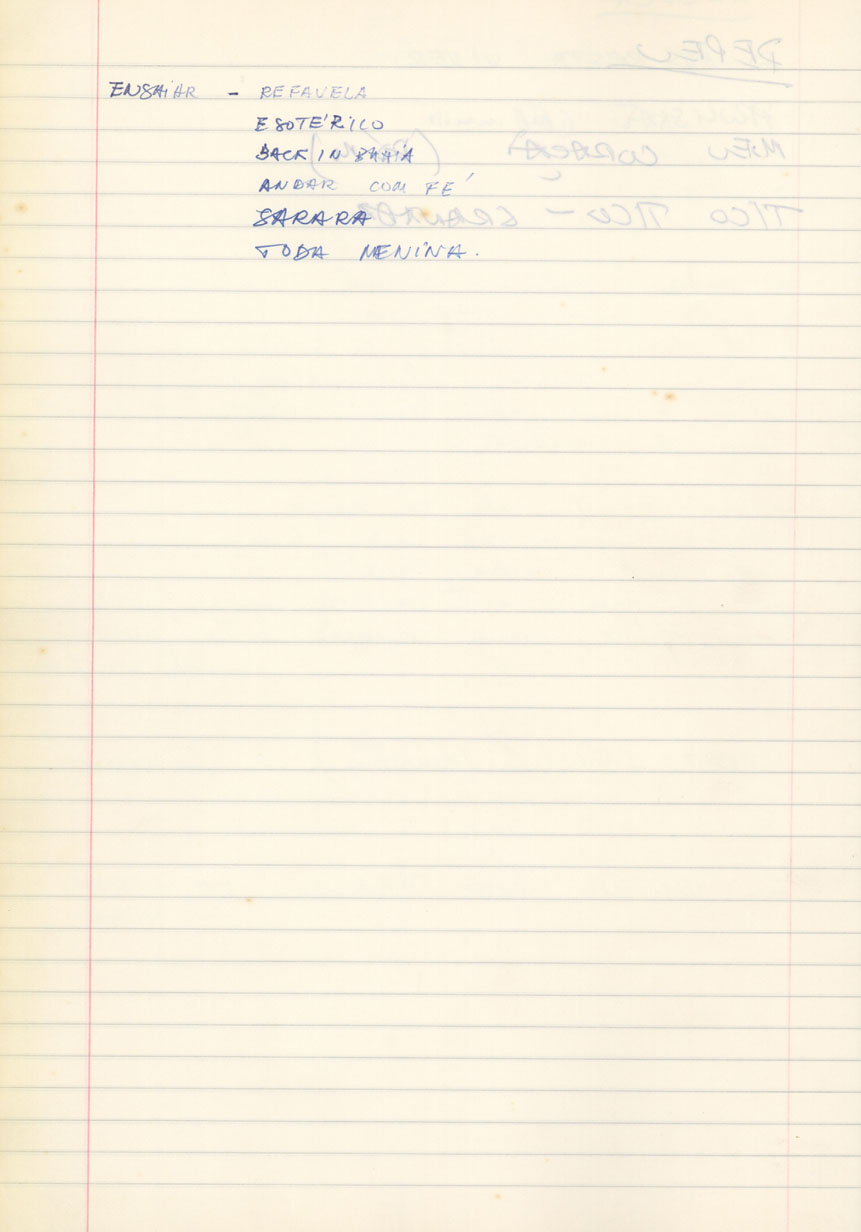 ENSAIAR - REFAVELA
ESOTÉRICO
BACK IN BAHIA
ANDAR COM FÉ
SARARA
TODA MENINA.